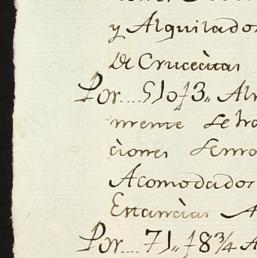 y Alquilados
de Crucecitas
Por....510 f3,, Al
mente se ha
ciones
Acomodados
Estancias A
Por...71,,f8¾ A